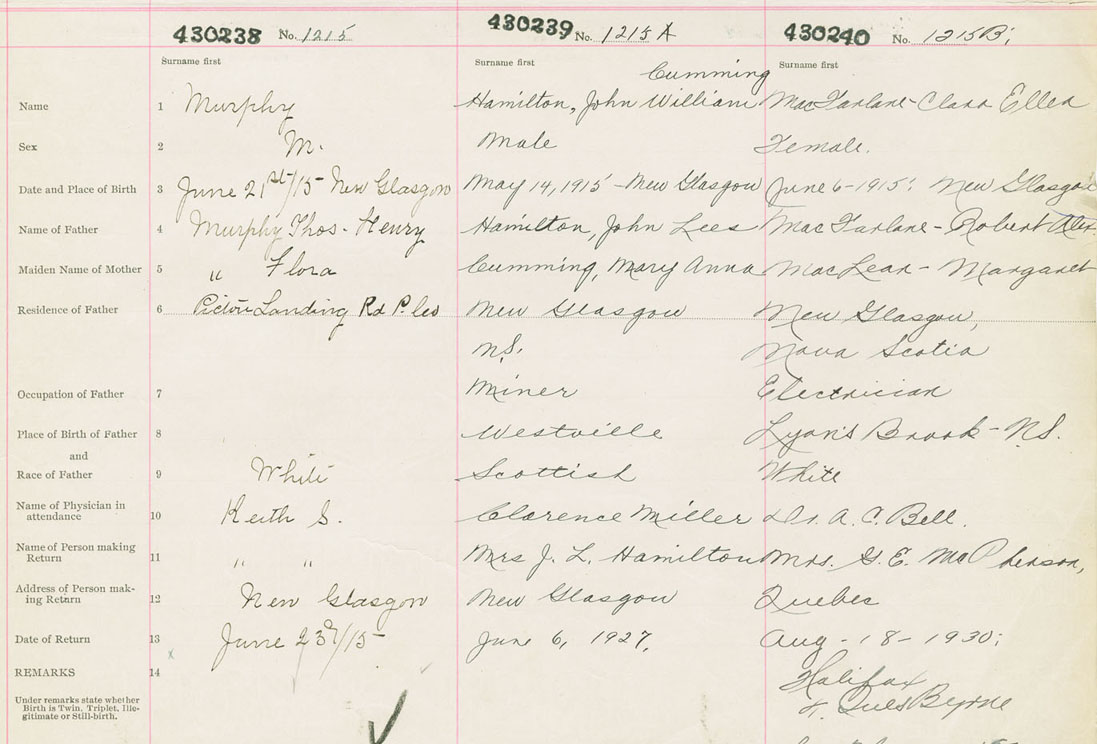 430238 No. 1215 430239 No. 1215 A 430240 No. 1215B;
Surname first Surname first Surname first
Cumming
Name 1 Murphy Hamilton, John William MacFarlane - Clara Ellen
Sex 2 M. Male Female.
Date and Place of Birth 3 June 21st/15 - New Glasgow May 14, 1915 - New Glasgow June 6 - 1915; New Glasgow
Name of Father 4 Murphy Thos. Henry Hamilton, John Lees MacFarlane - Robert Alex.
Maiden Name of Mother 5 " Flora Cumming, Mary Anna MacLean - Margaret
Residence of Father 6 Pictou Landing Rd P. Co New Glasgow New Glasgow,
N.S. Nova Scotia
Occupation of Father 7 Miner Electrician
Place of Birth of Father 8 Westville Lyons Brook - N.S.
and
Race of Father 9 White Scottish White
Name of Physician in
attendance 10 Keith S. Clarence Miller Dr. A. C. Bell.
Name of Person making
Return 11 " " Mrs J. L. Hamilton Mrs. G. E. MacPherson,
Address of Person mak-
ing Return 12 New Glasgow New Glasgow Quebec
Date of Return 13 June 23rd/15 - June 6, 1927. Aug - 18 - 1930;
REMARKS 14 Halifax
Under remarks state whether
Birth is Twin, Triplet, Ille-
gitimate or Still-birth.
Byrne